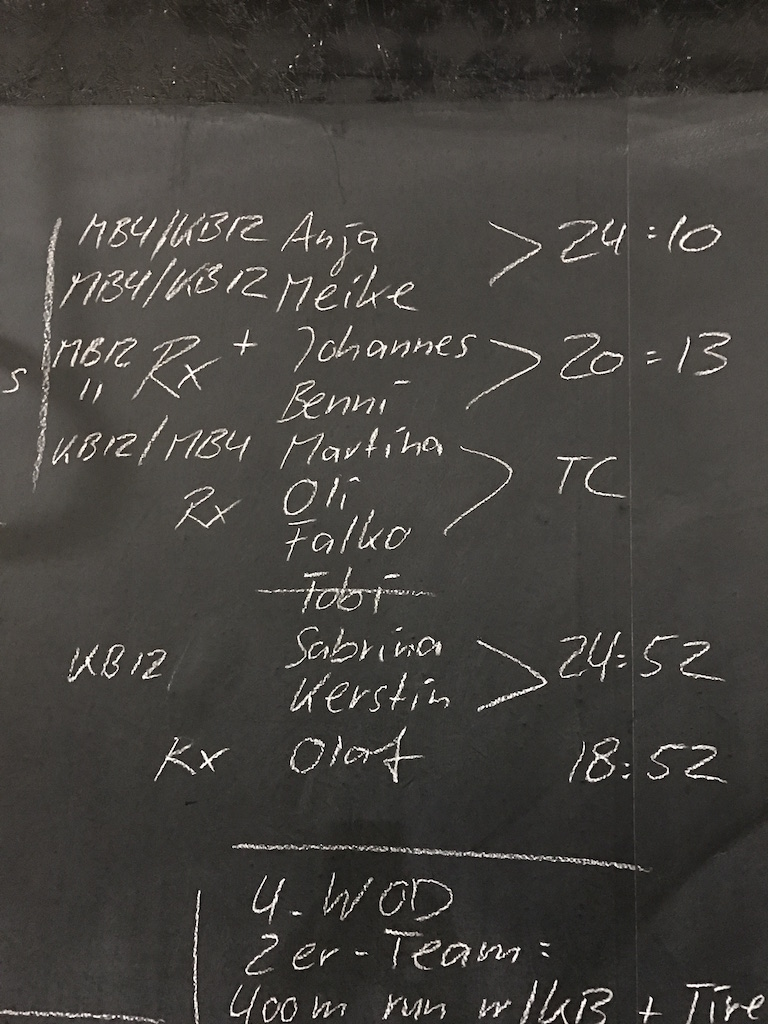 MB4/KB12 Anja > 24:10
MB4/KB12 Meike
MB12 Rx + Johannes > 20:13
s " Benni
KB12/MB4 Martina
Rx Oli > TC
Falko
Tobi
KB12 Sabrina > 24:52
Kerstin
Rx Olaf 18:52
4. WOD
2er-Team:
400m run w/KB + Tire